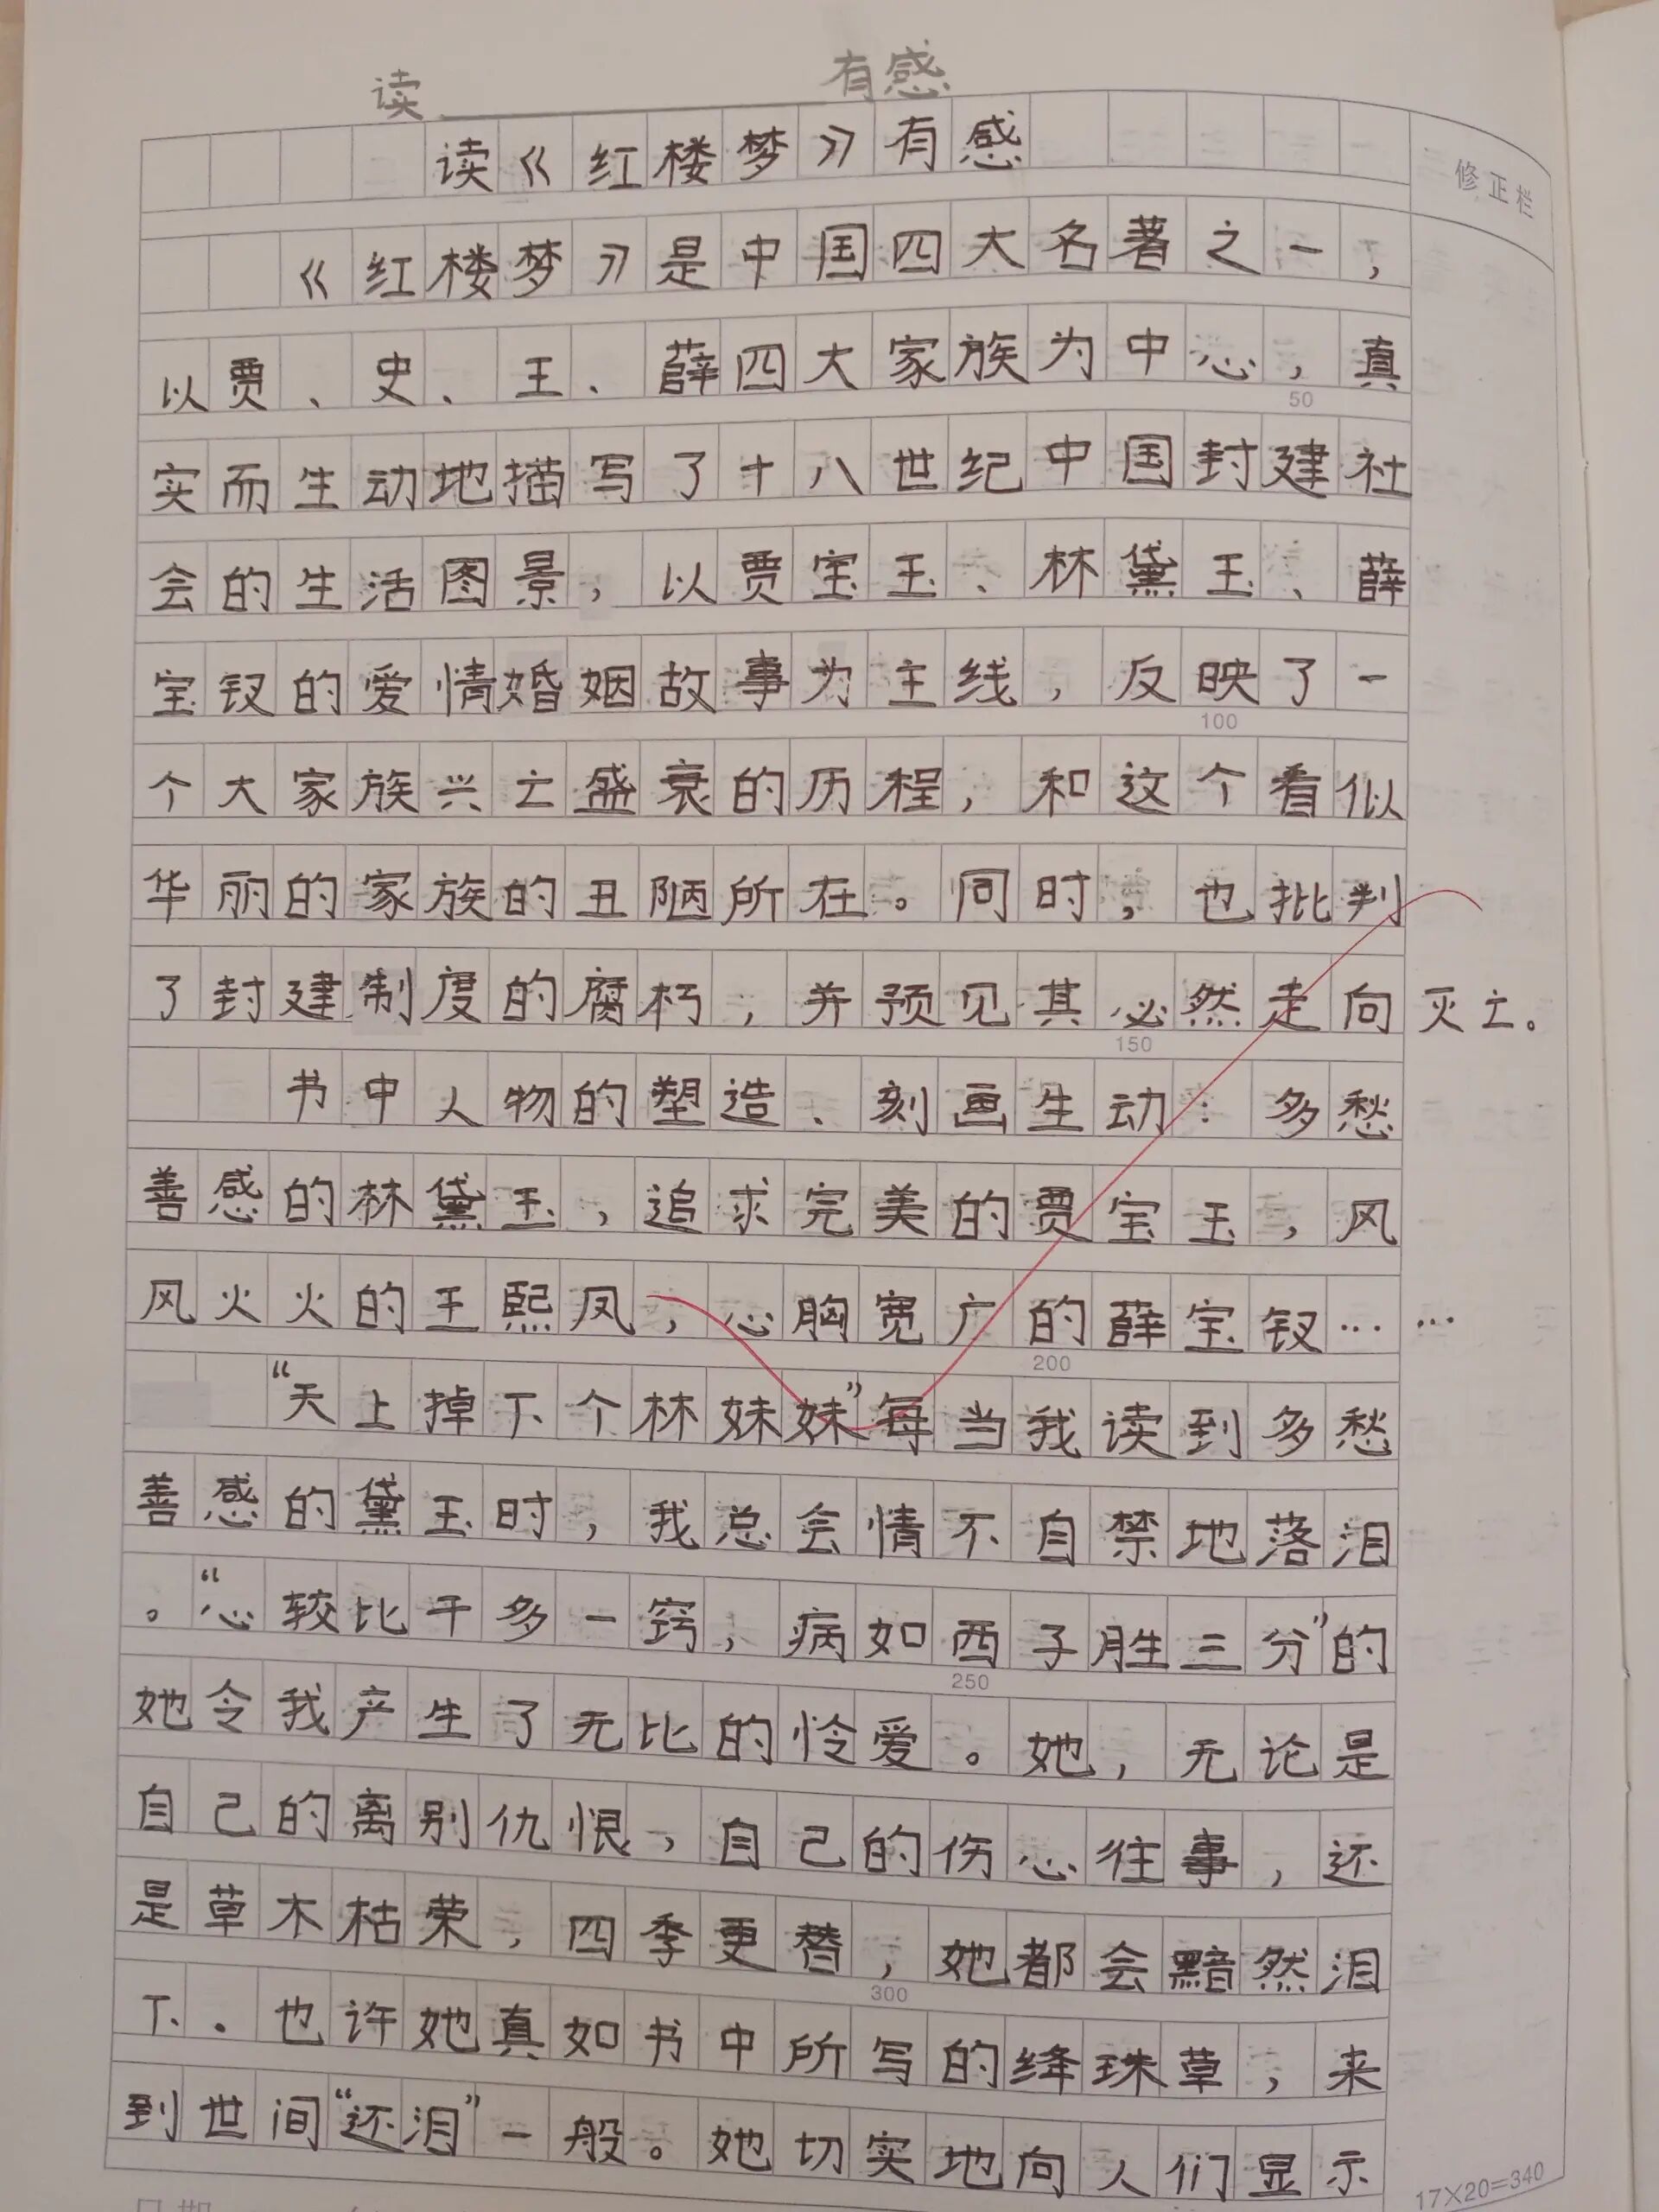 读 有感
读《红楼梦》有感
修正栏
《红楼梦》是中国四大名著之一,
以贾、史、王、薛四大家族为中心,真
50
实而生动地描写了十八世纪中国封建社
会的生活图景,以贾宝玉、林黛玉、薛
宝钗的爱情婚姻故事为主线,反映了一
100
个大家族兴亡盛衰的历程,和这个看似
华丽的家族的丑陋所在。同时,也批判
了封建制度的腐朽,并预见其必然走向灭亡。
150
书中人物的塑造、刻画生动:多愁
善感的林黛玉,追求完美的贾宝玉,风
风火火的王熙凤,心胸宽广的薛宝钗……
200
“天上掉下个林妹妹”每当我读到多愁
善感的黛玉时,我总会情不自禁地落泪
。“心较比干多一窍,病如西子胜三分”的
250
她令我产生了无比的怜爱。她,无论是
自己的离别仇恨,自己的伤心往事,还
是草木枯荣,四季更替,她都会黯然泪
300
下.也许她真如书中所写的绛珠草,来
到世间“还泪”一般。她切实地向人们显示
17×20=340